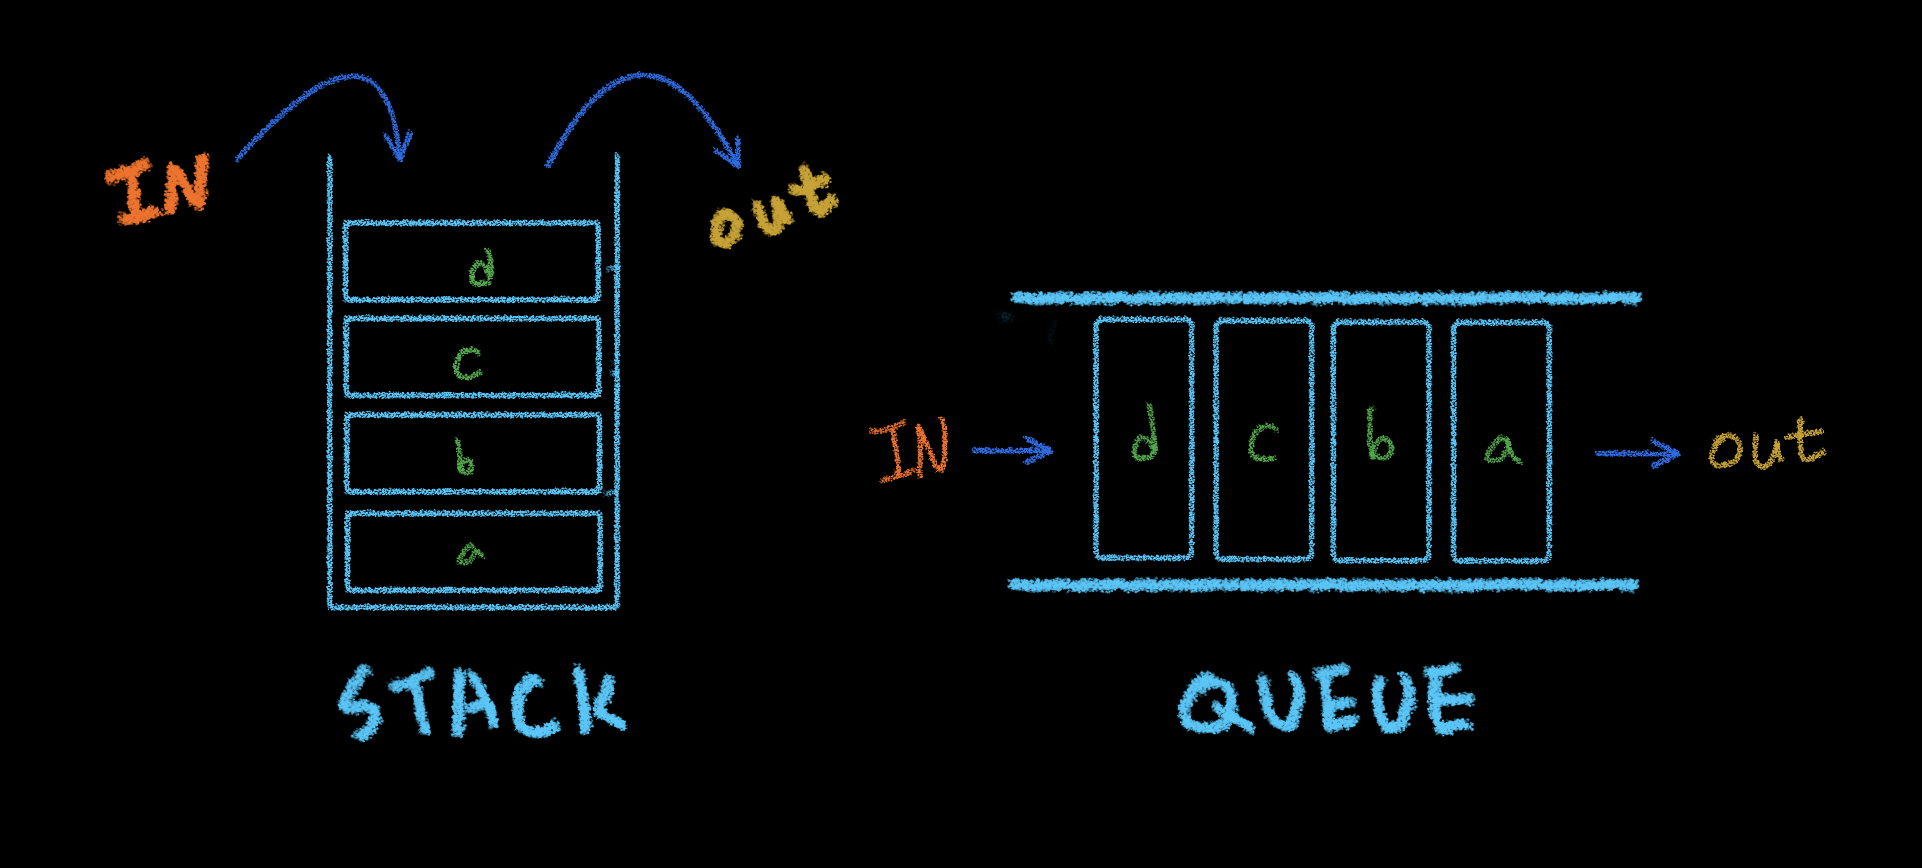 IN
out
d
c
b
a
STACK
IN
d c b a
out
QUEUE